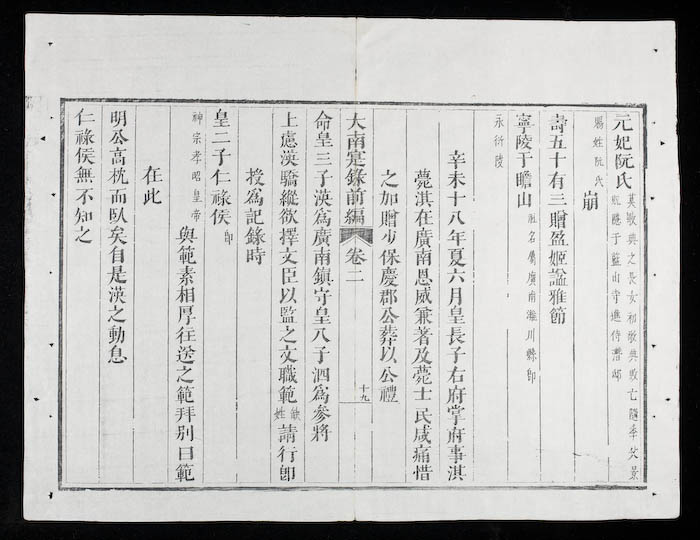 元妃阮氏 莫敬典之長女初敬典敗亡隨季父景
貺隱于藍山寺進侍潛邸
賜姓阮氏 崩
壽五十有三贈盈姬諡雅節
寧陵于瞻山 山名屬廣南濰川縣即
永衍陵
辛未十八年夏六月皇長子右府掌府事淇
薨淇在廣南恩威兼著及薨士民咸痛惜
之加贈少保慶郡公葬以公禮
大南寔錄前編 卷二 十九
命皇三子渶爲廣南鎮守皇八子泗爲參將
上慮渶驕縱欲擇文臣以監之文職範 缺姓 請行即
授爲記錄時
皇二子仁祿侯 即
神宗孝昭皇帝 與範素相厚往送之範拜別曰範
在此
明公高枕而臥矣自是渶之動息
仁祿侯無不知之